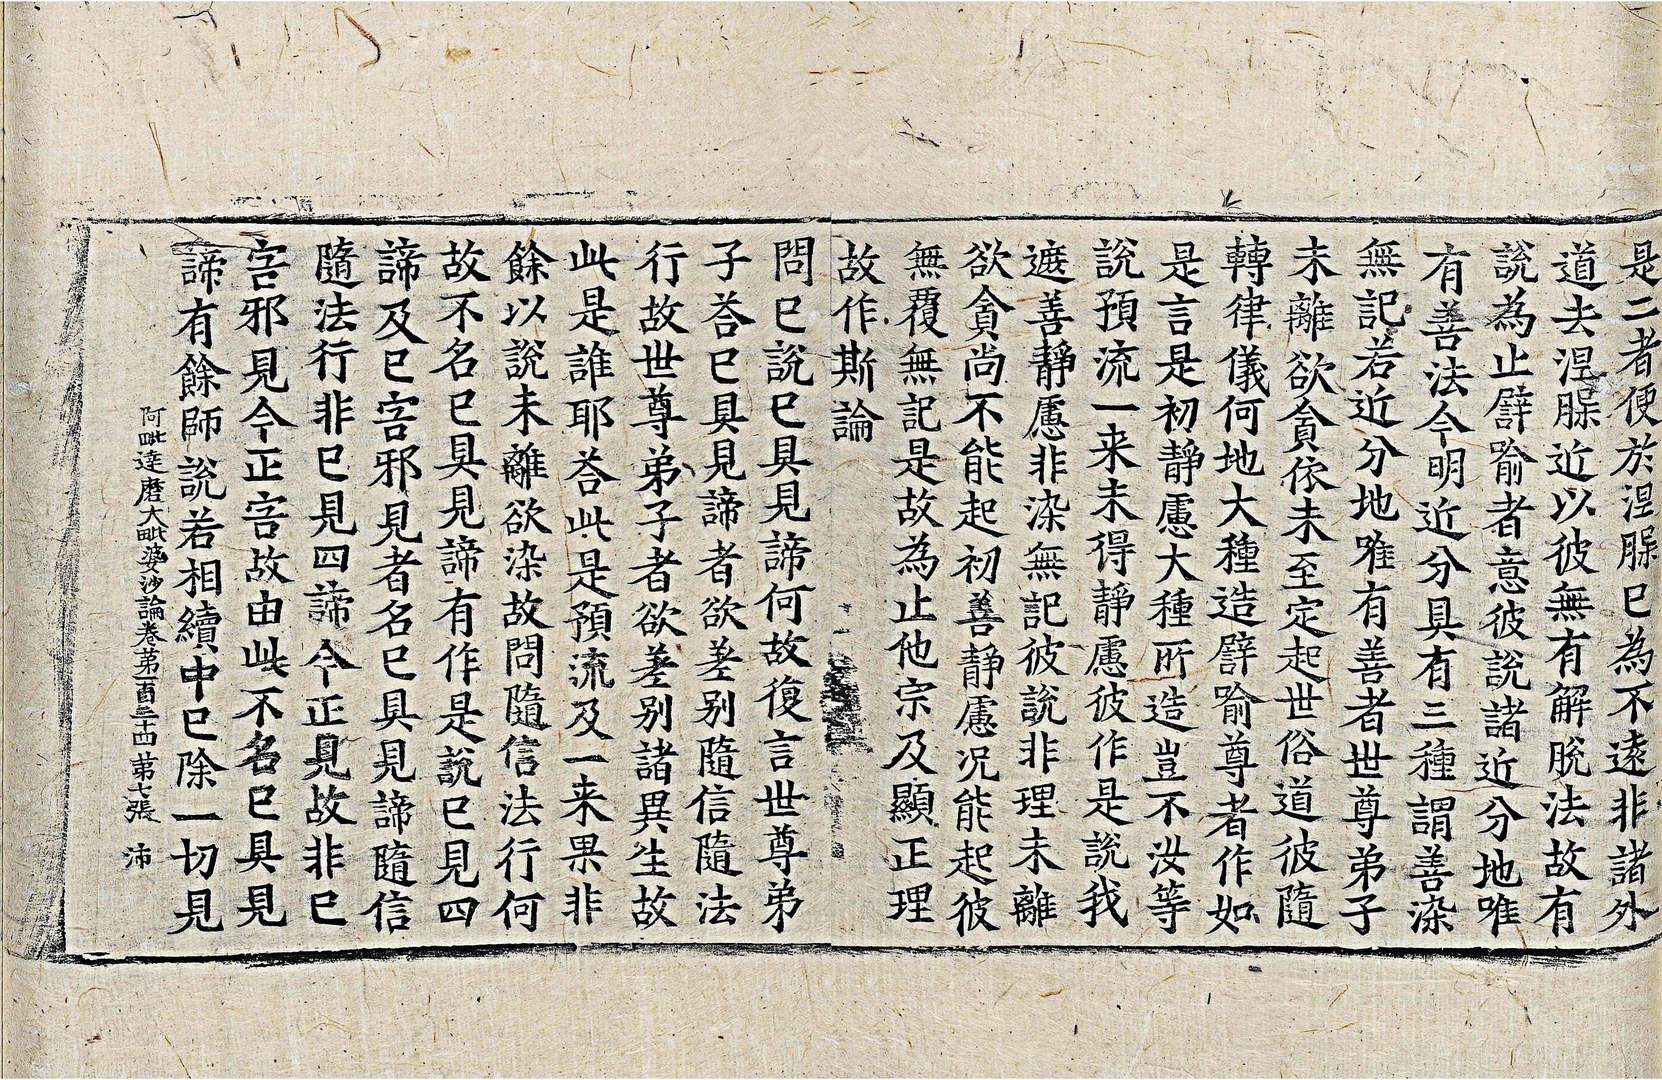 是二者便於涅脲已為不遠非諸外
道去涅脲近以彼無有解脫法故有
說為止譬喻者意彼說諸近分地唯
有善法今明近分具有三種謂善染
無記若近分地唯有善者世尊弟子
未離欲貪依未至定起世俗道彼隨
轉律儀何地大種造譬喻尊者作如
是言是初靜慮大種所造豈不汝等
說預流一来未得靜慮彼作是說我
遮善靜慮非染無記彼說非理未離
欲貪尚不能起初善靜慮况能起彼
無覆無記是故為止他宗及顯正理
故作斯論
問已說已具見諦何故復言世尊弟
子荅已具見諦者欲差别隨信隨法
行故世尊弟子者欲差别諸異生故
此是誰耶荅此是預流及一来果非
餘以說未離欲染故問隨信法行何
故不名已具見諦有作是說已見四
諦及已害邪見者名已具見諦隨信
隨法行非已見四諦今正見故非已
害邪見今正害故由此不名已具見
諦有餘師說若相續中已除一切見
阿毗達磨大毗婆沙論卷苐一百三十四 苐七張 沛